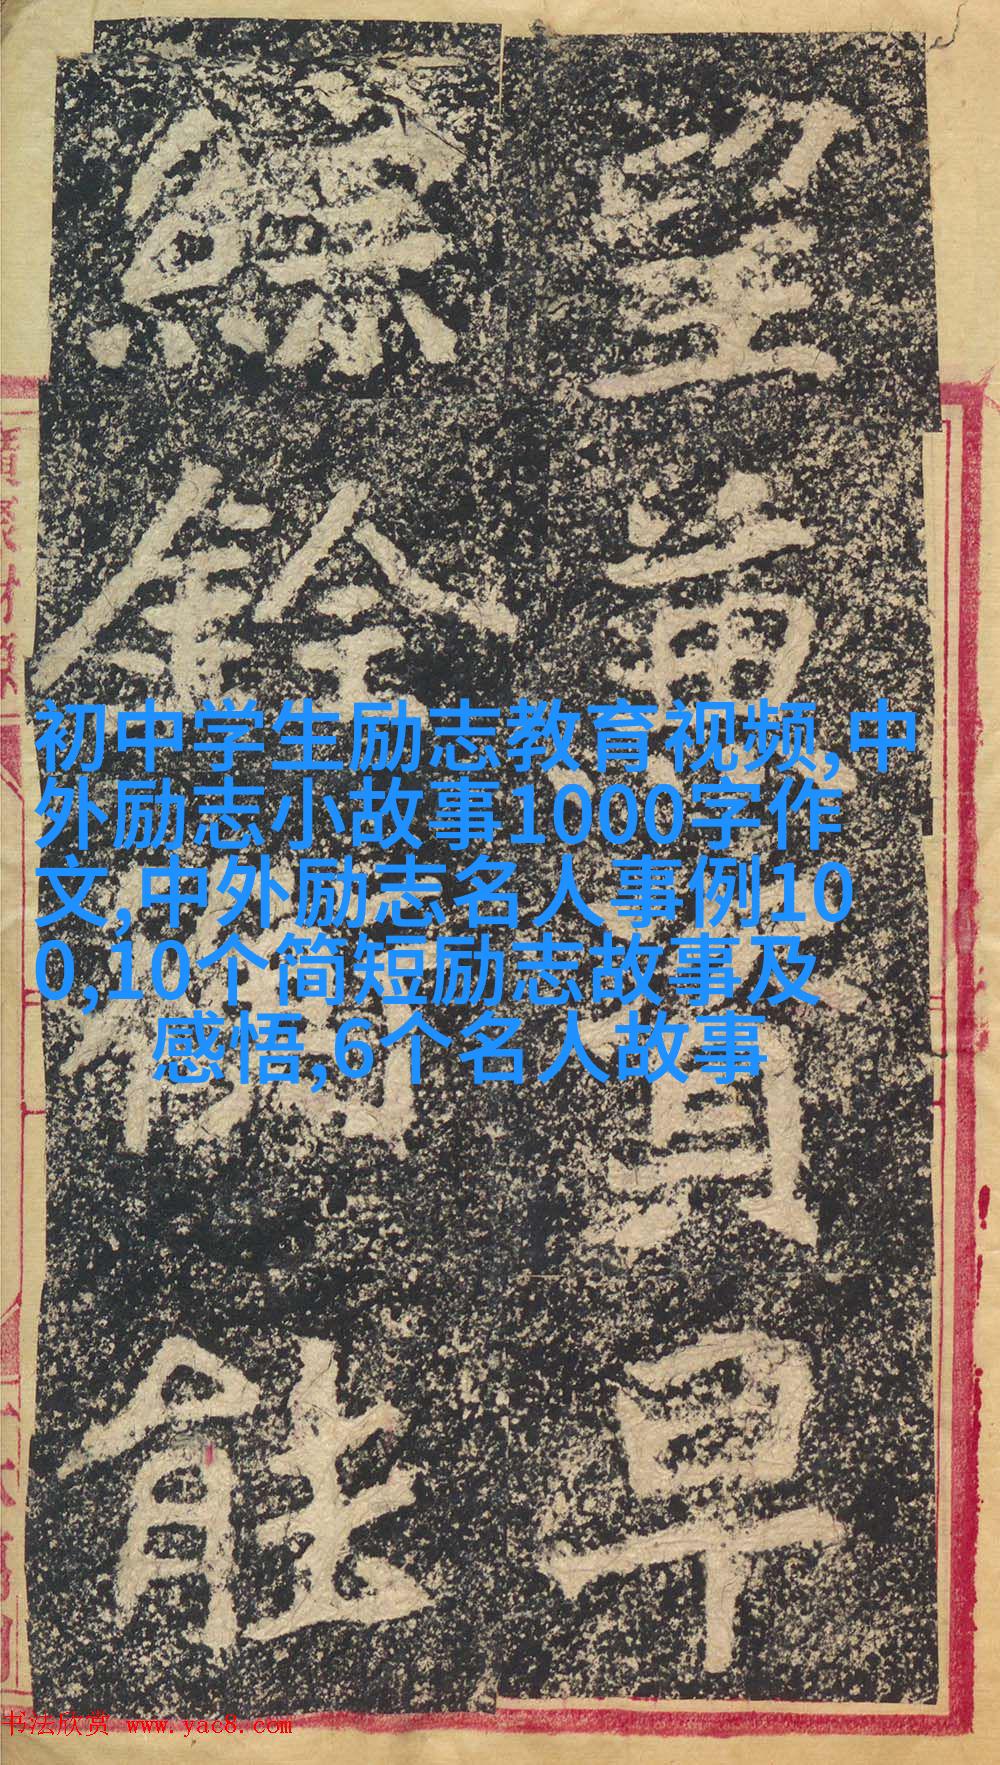 初中学生励志教育视频,中
外励志小故事1000字作
文,中外励志名人事例10
0,10个简短励志故事及
感悟,6个名人故事
望早
能
书法欣赏 www.yac8.com